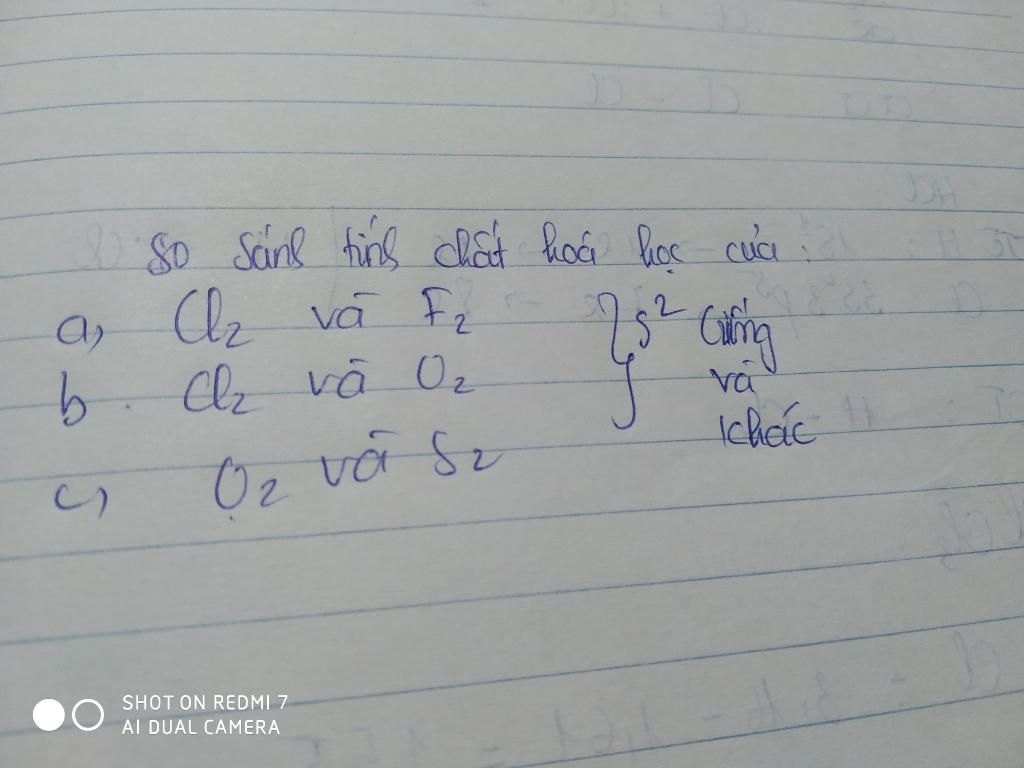 So sánh tính chất hoá học của:
a, Cl2 và F2
b. Cl2 và O2
c, O2 và S2
} s2 Giống
và
khác
SHOT ON REDMI 7
AI DUAL CAMERA